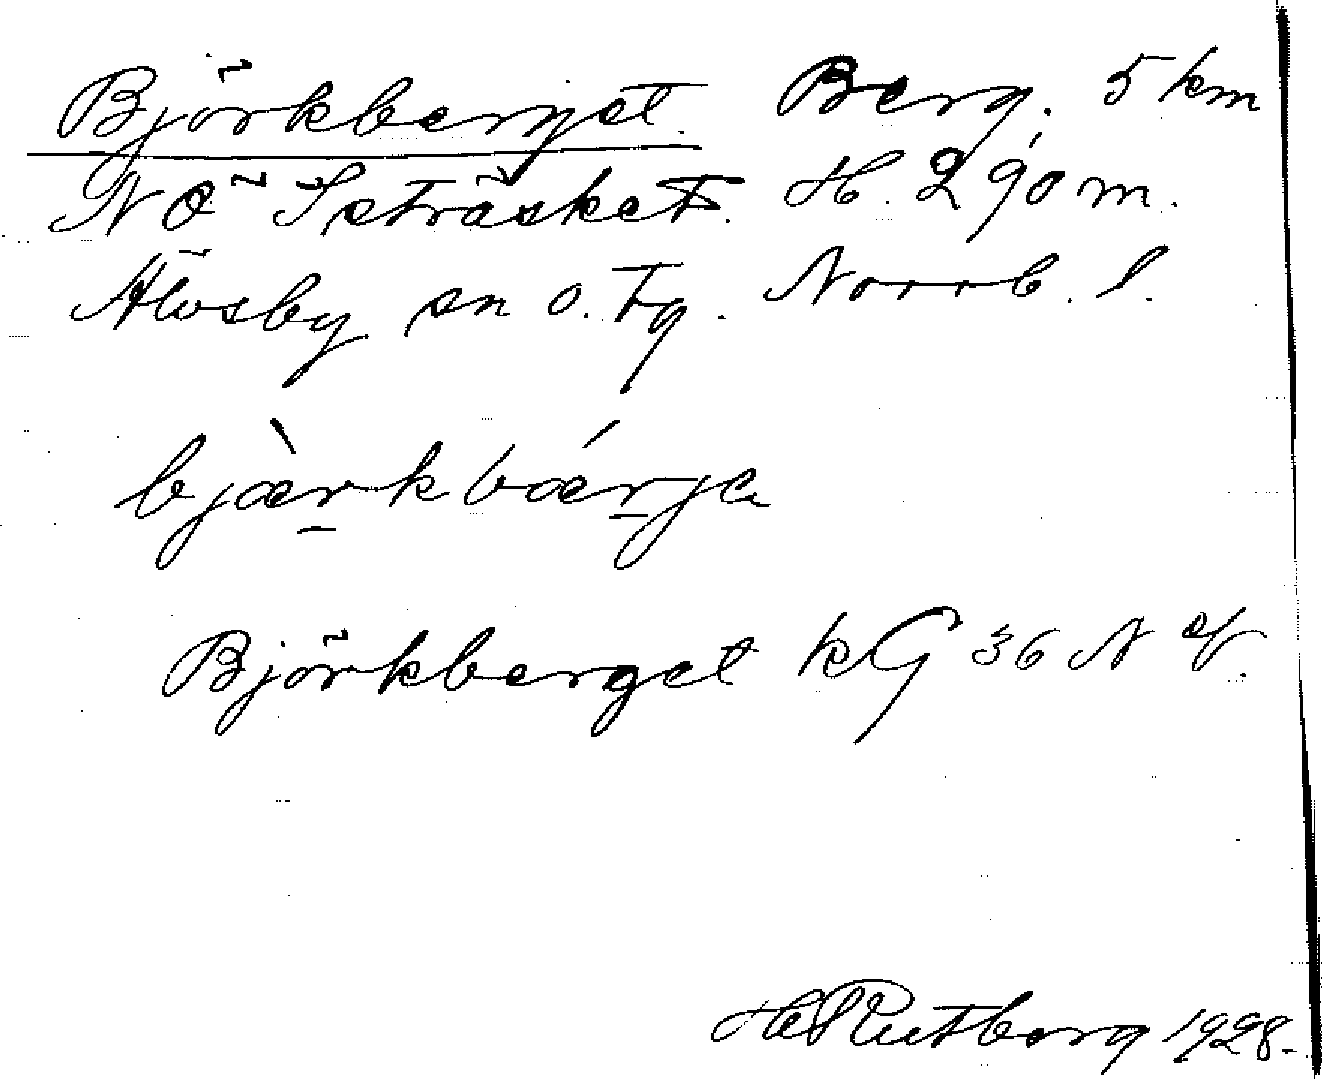 Björkberget. Berg. 5 km
NÖ Setråsket. H. 290 m.
Älvsby sn o. Tg. Norrb. l.
bjæ̀rkbǽrje
Björkberget kG 36 N
H Rutberg 1928.